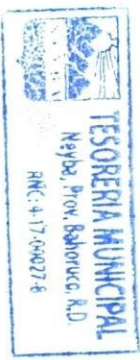 TESORERIA MUNICIPAL
Neyba, Prov. Bahoruco, R.D.
RNC: 4-17-00027-8